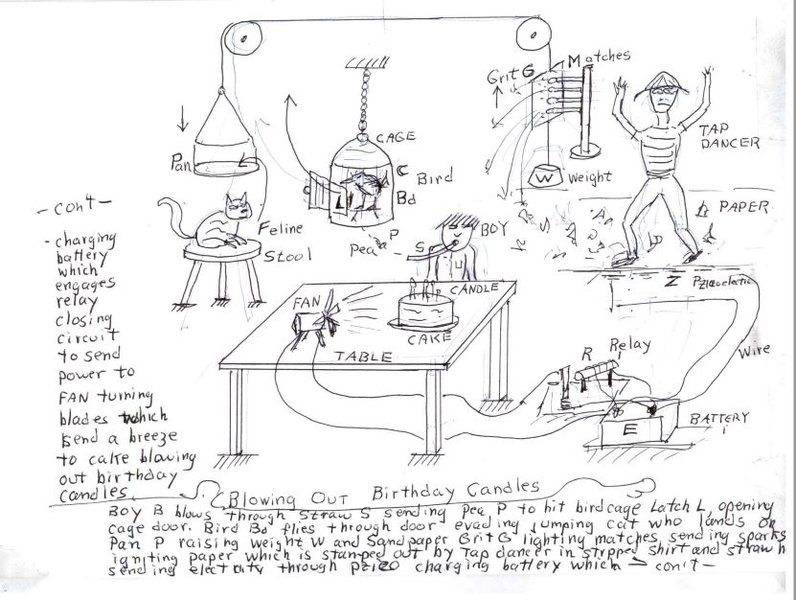 Matches
Grit G
CAGE
TAP
DANCER
Pan
C
Bird
Bd
W
Weight
L
PAPER
- con't -
Feline
Stool
Pea P
S
BOY
- charging
battery
which
engages
relay
closing
circuit
to send
power to
FAN turning
blades which
send a breeze
to cake blowing
out birthday
candles.
Z Pzieoelectric
CANDLE
FAN
CAKE
TABLE
R
Relay
Wire
BATTERY
E
Blowing Out Birthday Candles
Boy B blows through Straw S sending Pea P to hit birdcage Latch L, opening
cage door. Bird Bd flies through door evading jumping cat who lands on
Pan P raising weight W and Sandpaper Grit G lighting matches, sending sparks
igniting paper which is stamped out by Tap dancer in stripped shirt and straw h
sending electricity through Pzieo charging battery which - con't -